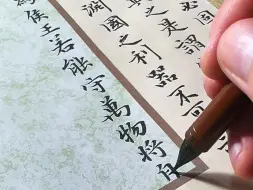 固
之是謂
淵國之利器不可
侯王若能守萬物將自